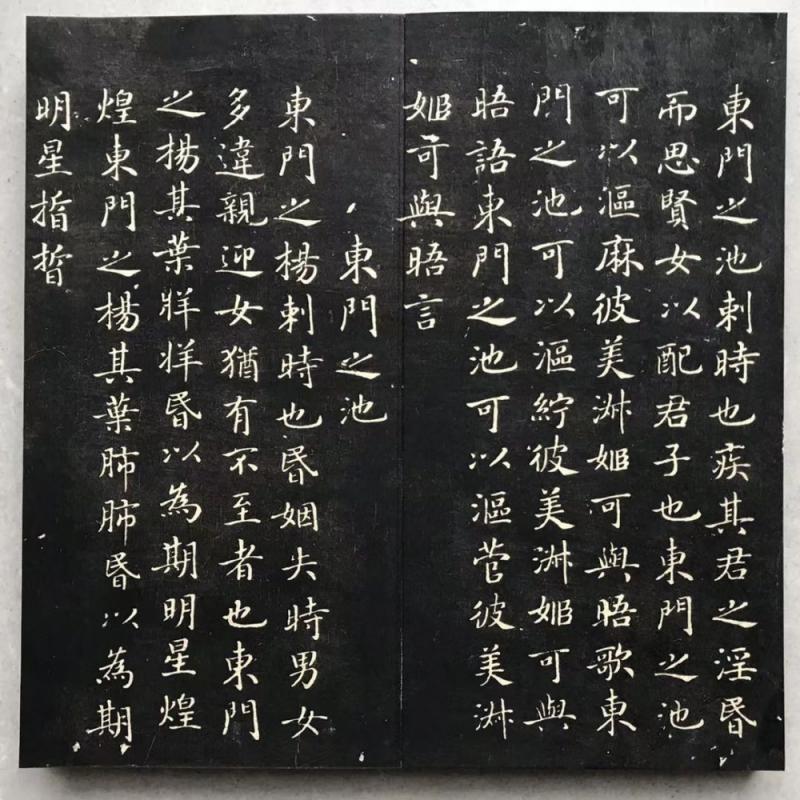 東門之池刺時也疾其君之淫昏
而思賢女以配君子也東門之池
可以漚麻彼美淑姬可與晤歌東
門之池可以漚紵彼美淑姬可與
晤語東門之池可以漚菅彼美淑
姬可與晤言
東門之池
東門之楊刺時也昬姻失時男女
多違親迎女猶有不至者也東門
之楊其葉牂牂昬以為期明星煌
煌東門之楊其葉肺肺昬以為期
明星晢晢